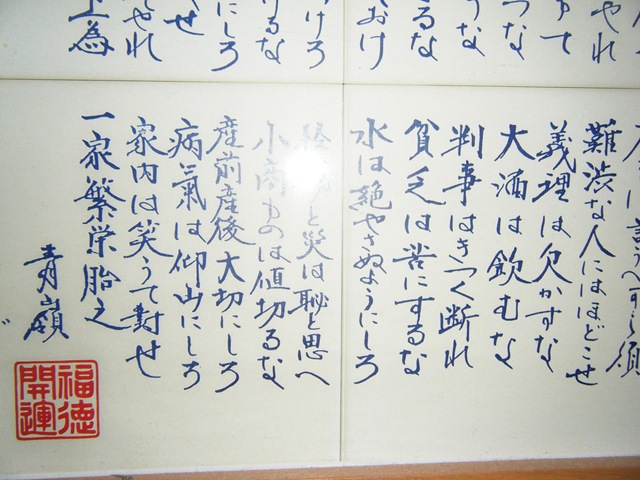 やれ
つな
うな
るな
おけ
けろ
るな
にしろ
せ
やれ
上為
難渋な人にはほどこせ
義理は欠かすな
大酒は飲むな
判事はきつく断れ
貧乏は苦にするな
水は絶やさぬようにしろ
と災は恥と思へ
小商ものは値切るな
産前産後大切にしろ
病氣は仰山にしろ
家内は笑うて對せ
一家繁栄胎之
青嶺
福徳
開運